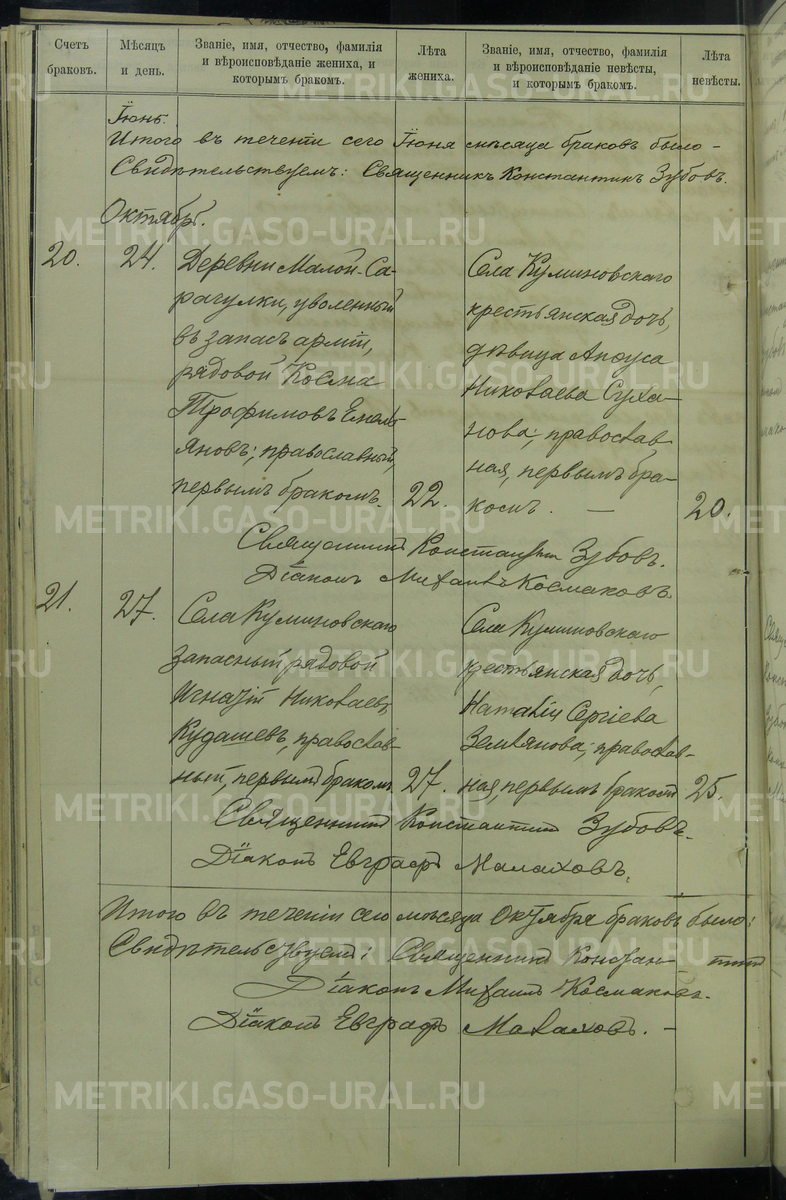 Счетъ браковъ.
Мѣсяцъ и день.
Званіе, имя, отчество, фамилія
и вѣроисповѣданіе жениха, и
которымъ бракомъ.
Лѣта жениха.
Званіе, имя, отчество, фамилія
и вѣроисповѣданіе невѣсты,
и которымъ бракомъ.
Лѣта невѣсты.
Іюнь.
Итого въ теченіи сего Іюня мѣсяца браковъ было –
Свидѣтельствуемъ: Священникъ Константинъ Зубовъ.
Октябрь.
20.
24.
Деревни Малой-Са-
рагулки, уволенный
въ запасъ арміи,
рядовой Косма
Трофимовъ Емель-
яновъ; православный,
первымъ бракомъ.
22.
Села Куминовскаго
крестьянская дочь,
дѣвица Анѳуса
Николаева Суха-
нова; православ-
ная, первымъ бра-
комъ. —
20.
Священникъ Константинъ Зубовъ.
Діаконъ Михаилъ Космаковъ.
21.
27.
Села Куминовскаго
запасный рядовой
Игнатій Николаевъ
Кудашевъ, православ-
ный, первымъ бракомъ.
27.
Села Куминовскаго
крестьянская дочь,
Наталія Сергіева
Земляновa; православ-
ная, первымъ бракомъ
25.
Священникъ Константинъ Зубовъ.
Діаконъ Евграфъ Малаховъ.
Итого въ теченіи сего мѣсяца Октября браковъ было:
Свидѣтельствуемъ: Священникъ Констан- тинъ
Діаконъ Михаилъ Космаковъ.
Діаконъ Евграфъ Малаховъ. –
METRIKI.GASO-URAL.RU